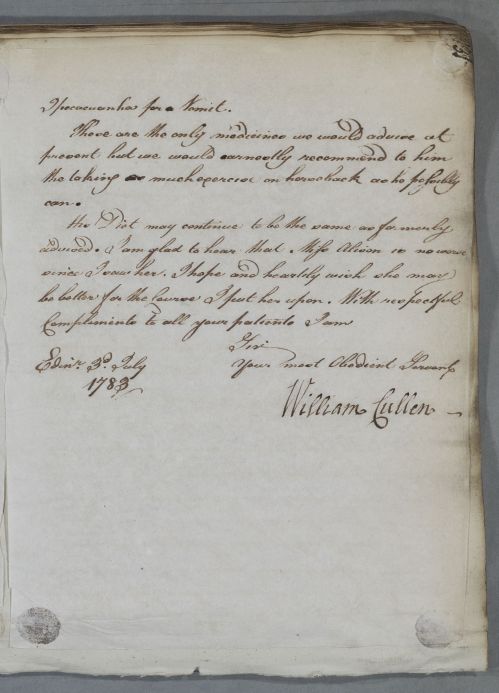 Ipecacuanha for a Vomit.
These are the only medicines we would advise at
present but we would earnestly recommend to him
the taking as much exercise on horseback as he possibly
can.
His Diet may continue to be the same as formerly
advised. I am glad to hear that Miss Alison is no worse
since I saw her. I hope and heartily wish she may
be better for the Course I put her upon. With respectful
Compliments to all your patients I am
Sir
Edinr. 3d. July
Your most Obedient Servant
1783
William Cullen